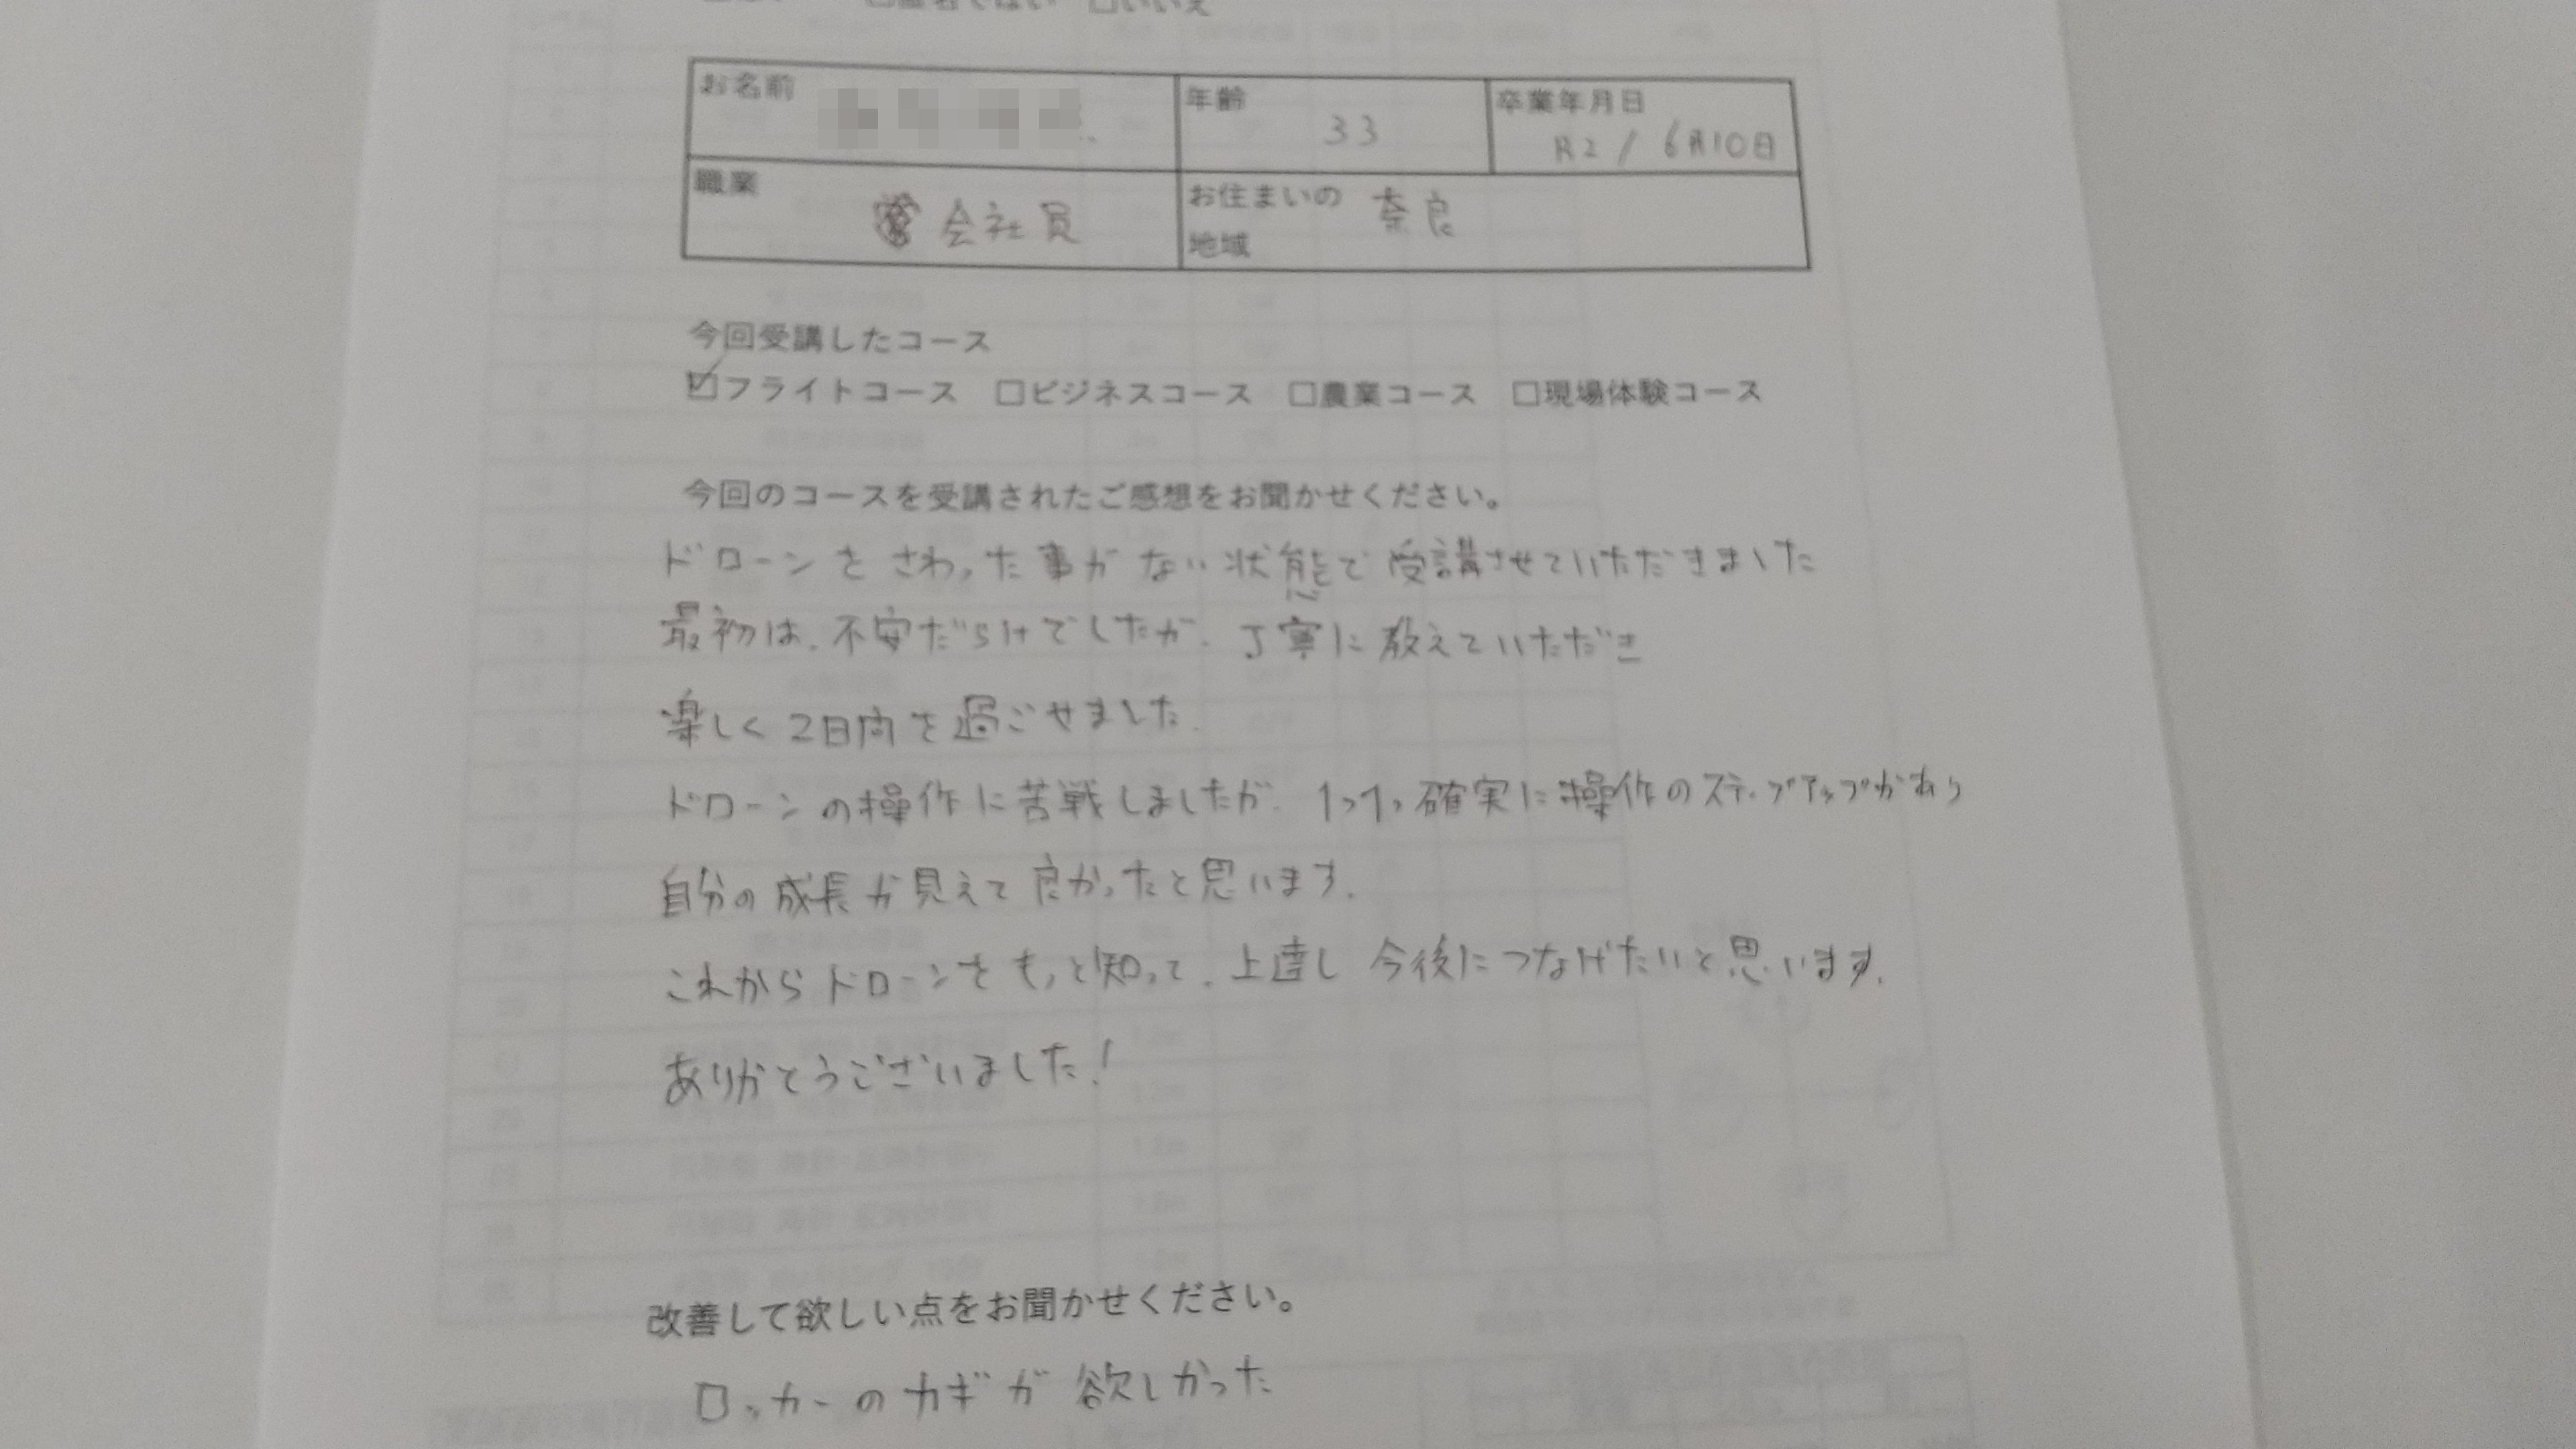 いいえ
お名前
年齢
33
卒業年月日
R2 / 6月10日
職業
会社員
お住まいの
地域
奈良
今回受講したコース
☑フライトコース □ビジネスコース □農業コース □現場体験コース
今回のコースを受講されたご感想をお聞かせください。
ドローンをさわった事がない状態で受講させていただきました
最初は、不安だらけでしたが、丁寧に教えていただき
楽しく2日間を過ごせました。
ドローンの操作に苦戦しましたが、1つ1つ確実に操作のステップアップがあり
自分の成長が見えて良かったと思います。
これからドローンをもっと知って、上達し 今後につなげたいと思います。
ありがとうございました!
改善して欲しい点をお聞かせください。
ロッカーのカギが欲しかった